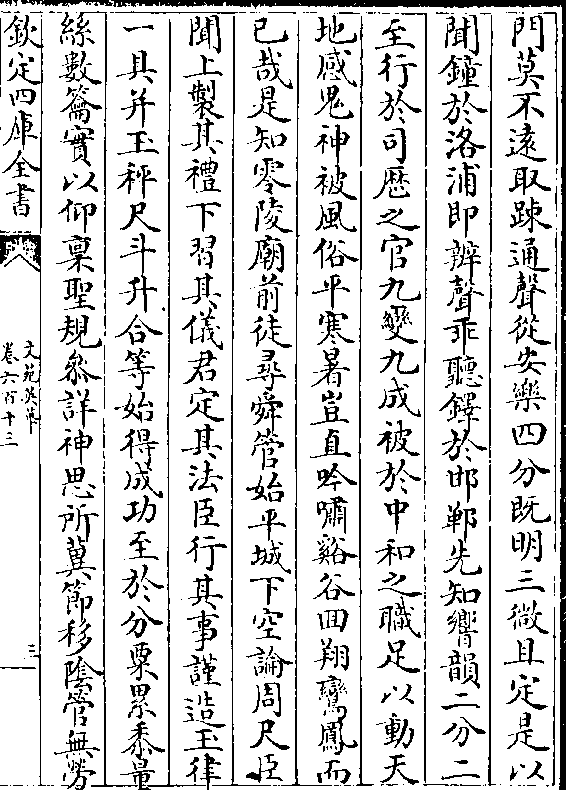 門莫不遠取踈通聲從安樂四分既明三微且定是以
聞鐘於洛浦即辨聲乖聽鐸於邯鄲先知響韻二分二
至行於司歴之官九變九成被於中和之職足以動天
地感鬼神被風俗平寒暑豈直吟嘯谿谷回翔鸞鳳而
已哉是知零陵廟前徒尋舜管始平城下空論周尺臣
聞上製其禮下習其儀君定其法臣行其事謹造玉律
一具并玉秤尺斗升合等始得成功至於分粟累黍量
絲數籥實以仰稟聖規叅詳神思所冀節移陰管無勞
欽定四庫全書
文苑英華
卷六百十三
三